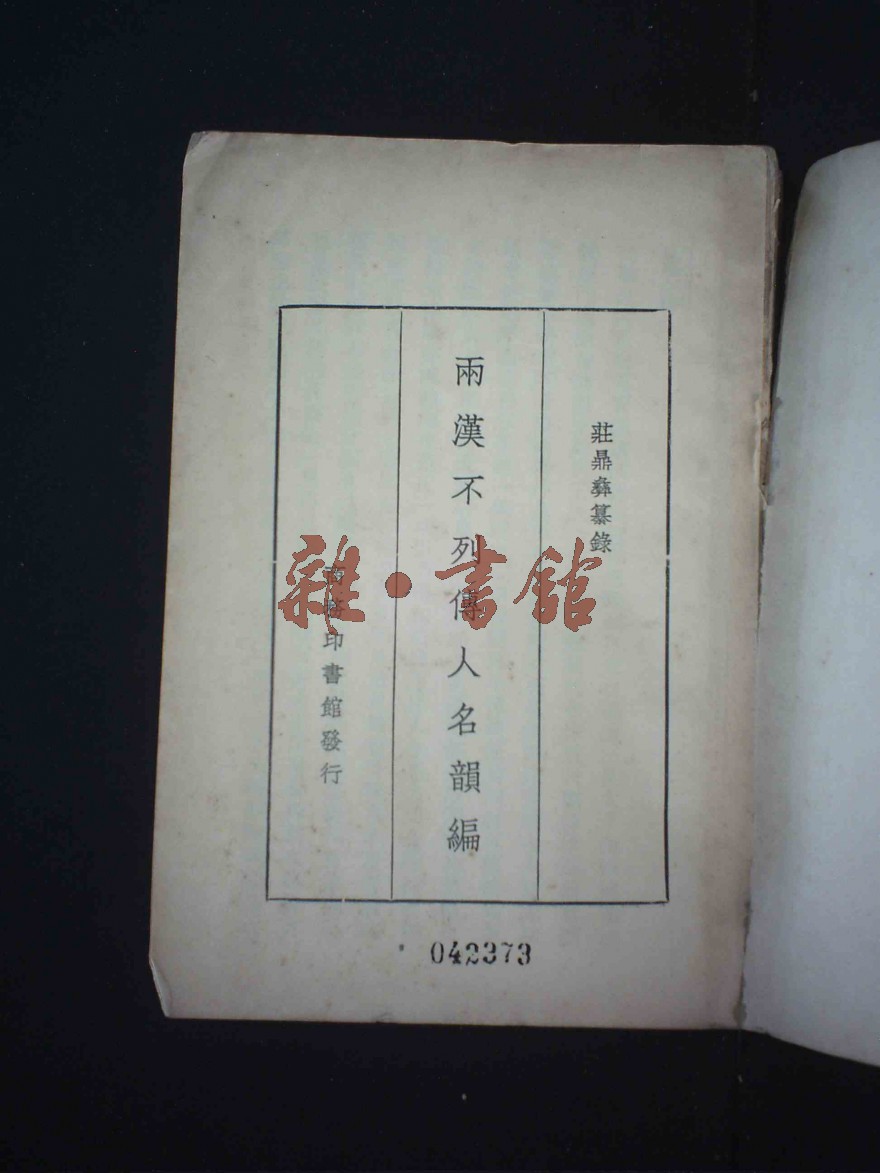 莊鼎彝纂錄
兩漢不列傳人名韻編
商務印書館發行
雜·書館
042373